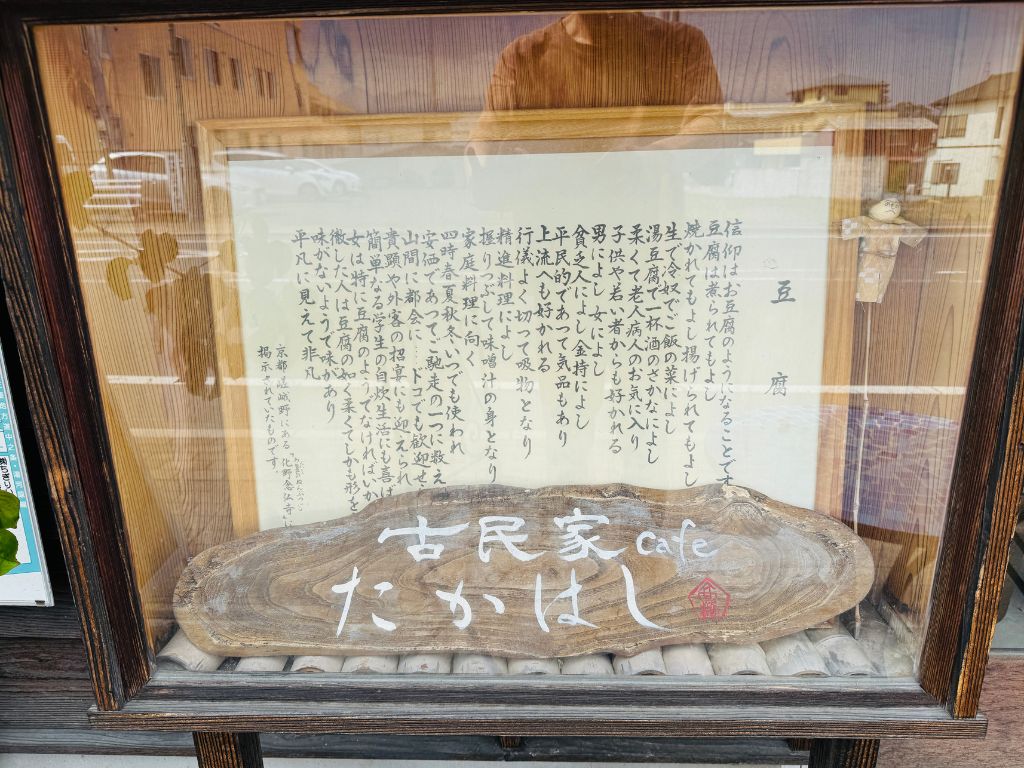 豆腐
信仰はお豆腐のようになることです
豆腐は煮られてもよし
焼かれてもよし揚げられてもよし
生で冷奴でご飯の菜によし
湯豆腐で一杯酒のさかなによし
柔くて老人病人のお気に入り
子供や若い者からも好かれる
男によし女によし
貧乏人によし金持によし
平民的であって気品もあり
上流へも好かれる
行儀よく切って吸物となり
精進料理によし
握りつぶして味噌汁の身となり
家庭料理に向く
四時春夏秋冬いつでも使われ
安価であってご馳走の一つに数え
山間に都会に…ドコでも歓迎せ
貴顕や外客の招宴にも迎えられ
簡単なる学生の自炊生活にも喜ば
女は特に豆腐のようでなければいか
徹した人は豆腐の如く柔くてしかも形を
味がないようで味があり
平凡に見えて非凡
京都・嵯峨野にある「化野念仏寺」に
掲示されていたものです。
古民家cafe
たかはし